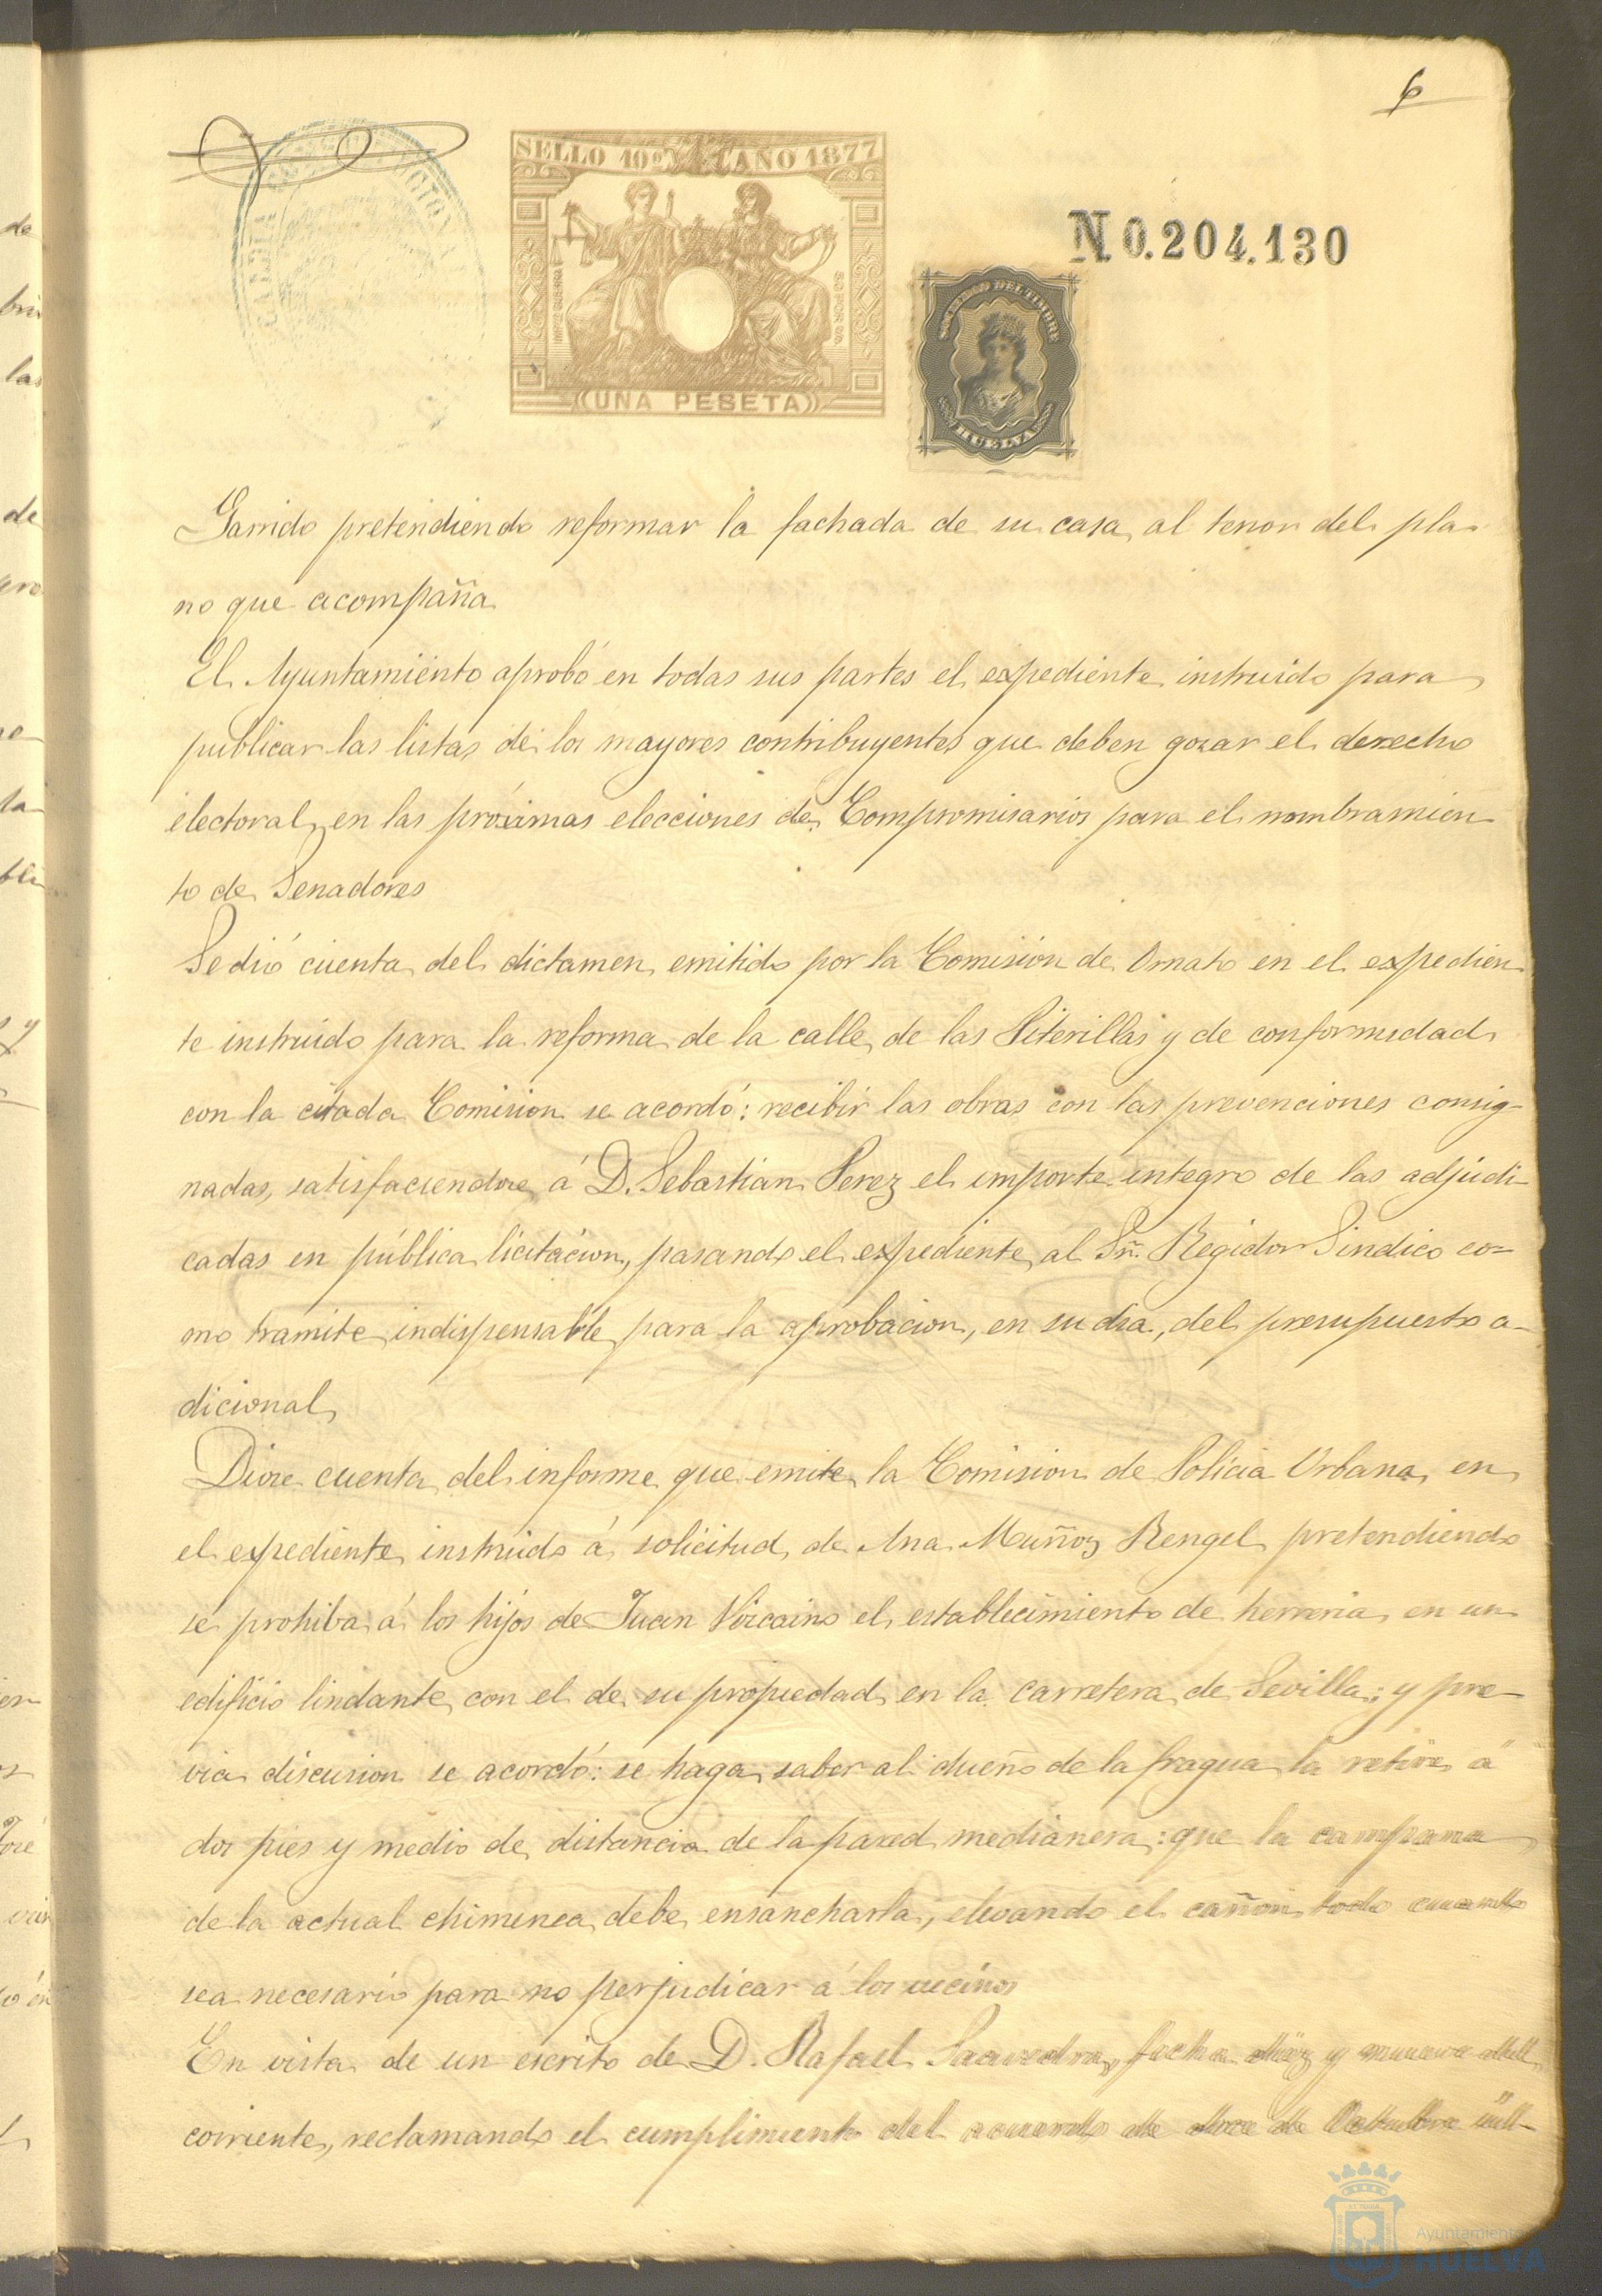 6
SELLO 10º AÑO 1877
UNA PESETA
N 0.204.130
SELLO DEL TIMBRE
HUELVA
Garrido pretendiendo reformar la fachada de su casa, al tenor del pla-
no que acompaña.
El Ayuntamiento aprobó en todas sus partes el expediente instruido para
publicar las listas de los mayores contribuyentes que deben gozar el derecho
electoral, en las próximas elecciones de Compromisarios para el nombramien-
to de Senadores
Se dió cuenta del dictamen emitido por la Comisión de Ornato en el expedien-
te instruido para la reforma de la calle de las Piterillas y de conformidad
con la citada Comision se acordó: recibir las obras con las prevenciones consig-
nadas, satisfaciendose á D. Sebastian Perez el importe integro de las adjudi-
cadas en pública licitacion, pasando el expediente al Sñ. Regidor Sindico co-
mo tramite indispensable para la aprobacion, en su dia, del presupuesto a-
dicional,
Diose cuenta del informe que emite la Comision de Policia Urbana en
el expediente instruido á solicitud de Ana Muñoz Rengel pretendiendo
se prohiba á los hijos de Juan Vizcaino el establecimiento de herreria en un
edificio lindante con el de su propiedad en la carretera de Sevilla; y pre-
via discusion se acordó: se haga saber al dueño de la fragua la retire á
dos pies y medio de distancia de la pared medianera: que la campana
de la actual chimenea debe ensancharla, elevando el cañon todo cuanto
sea necesario para no perjudicar á los vecinos
En vista de un escrito de D. Rafael Saavedra, fecha diez y nueve del
corriente, reclamando el cumplimiento del acuerdo de doce de Octubre últ-
Ayuntamiento
HUELVA